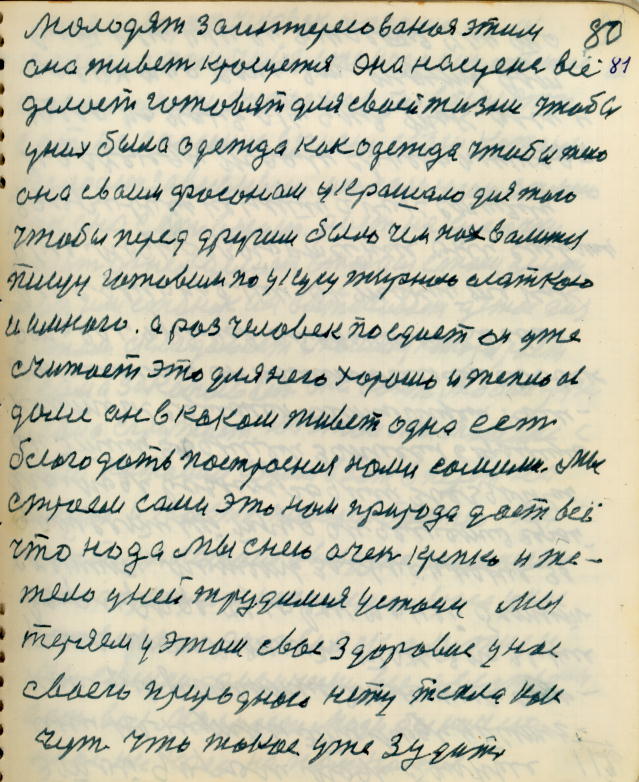 молодят заинтересованоя этим 80
она живет кросуется она на сцене всё 81
делоет готовят для своей жизни чтобы
у них была одежда как одежда чтобы
она своим фосоном украшало для того
чтобы перед другим было чем похвалится
пищу готовим по укусу жирною слаткою
и много. а роз человек поедает он уже
считает это для него хорошо и тепло в
доме он в каком живет одна есть
благодать построеная нами самими. Мы
строем сами это нам природа дает всё
что нода мы снею очен крепко и тя-
жело у ней трудимся устаем мы
теряем у этом свое здоровие у нас
своего природного нету тепла как
чут что такое уже зудит